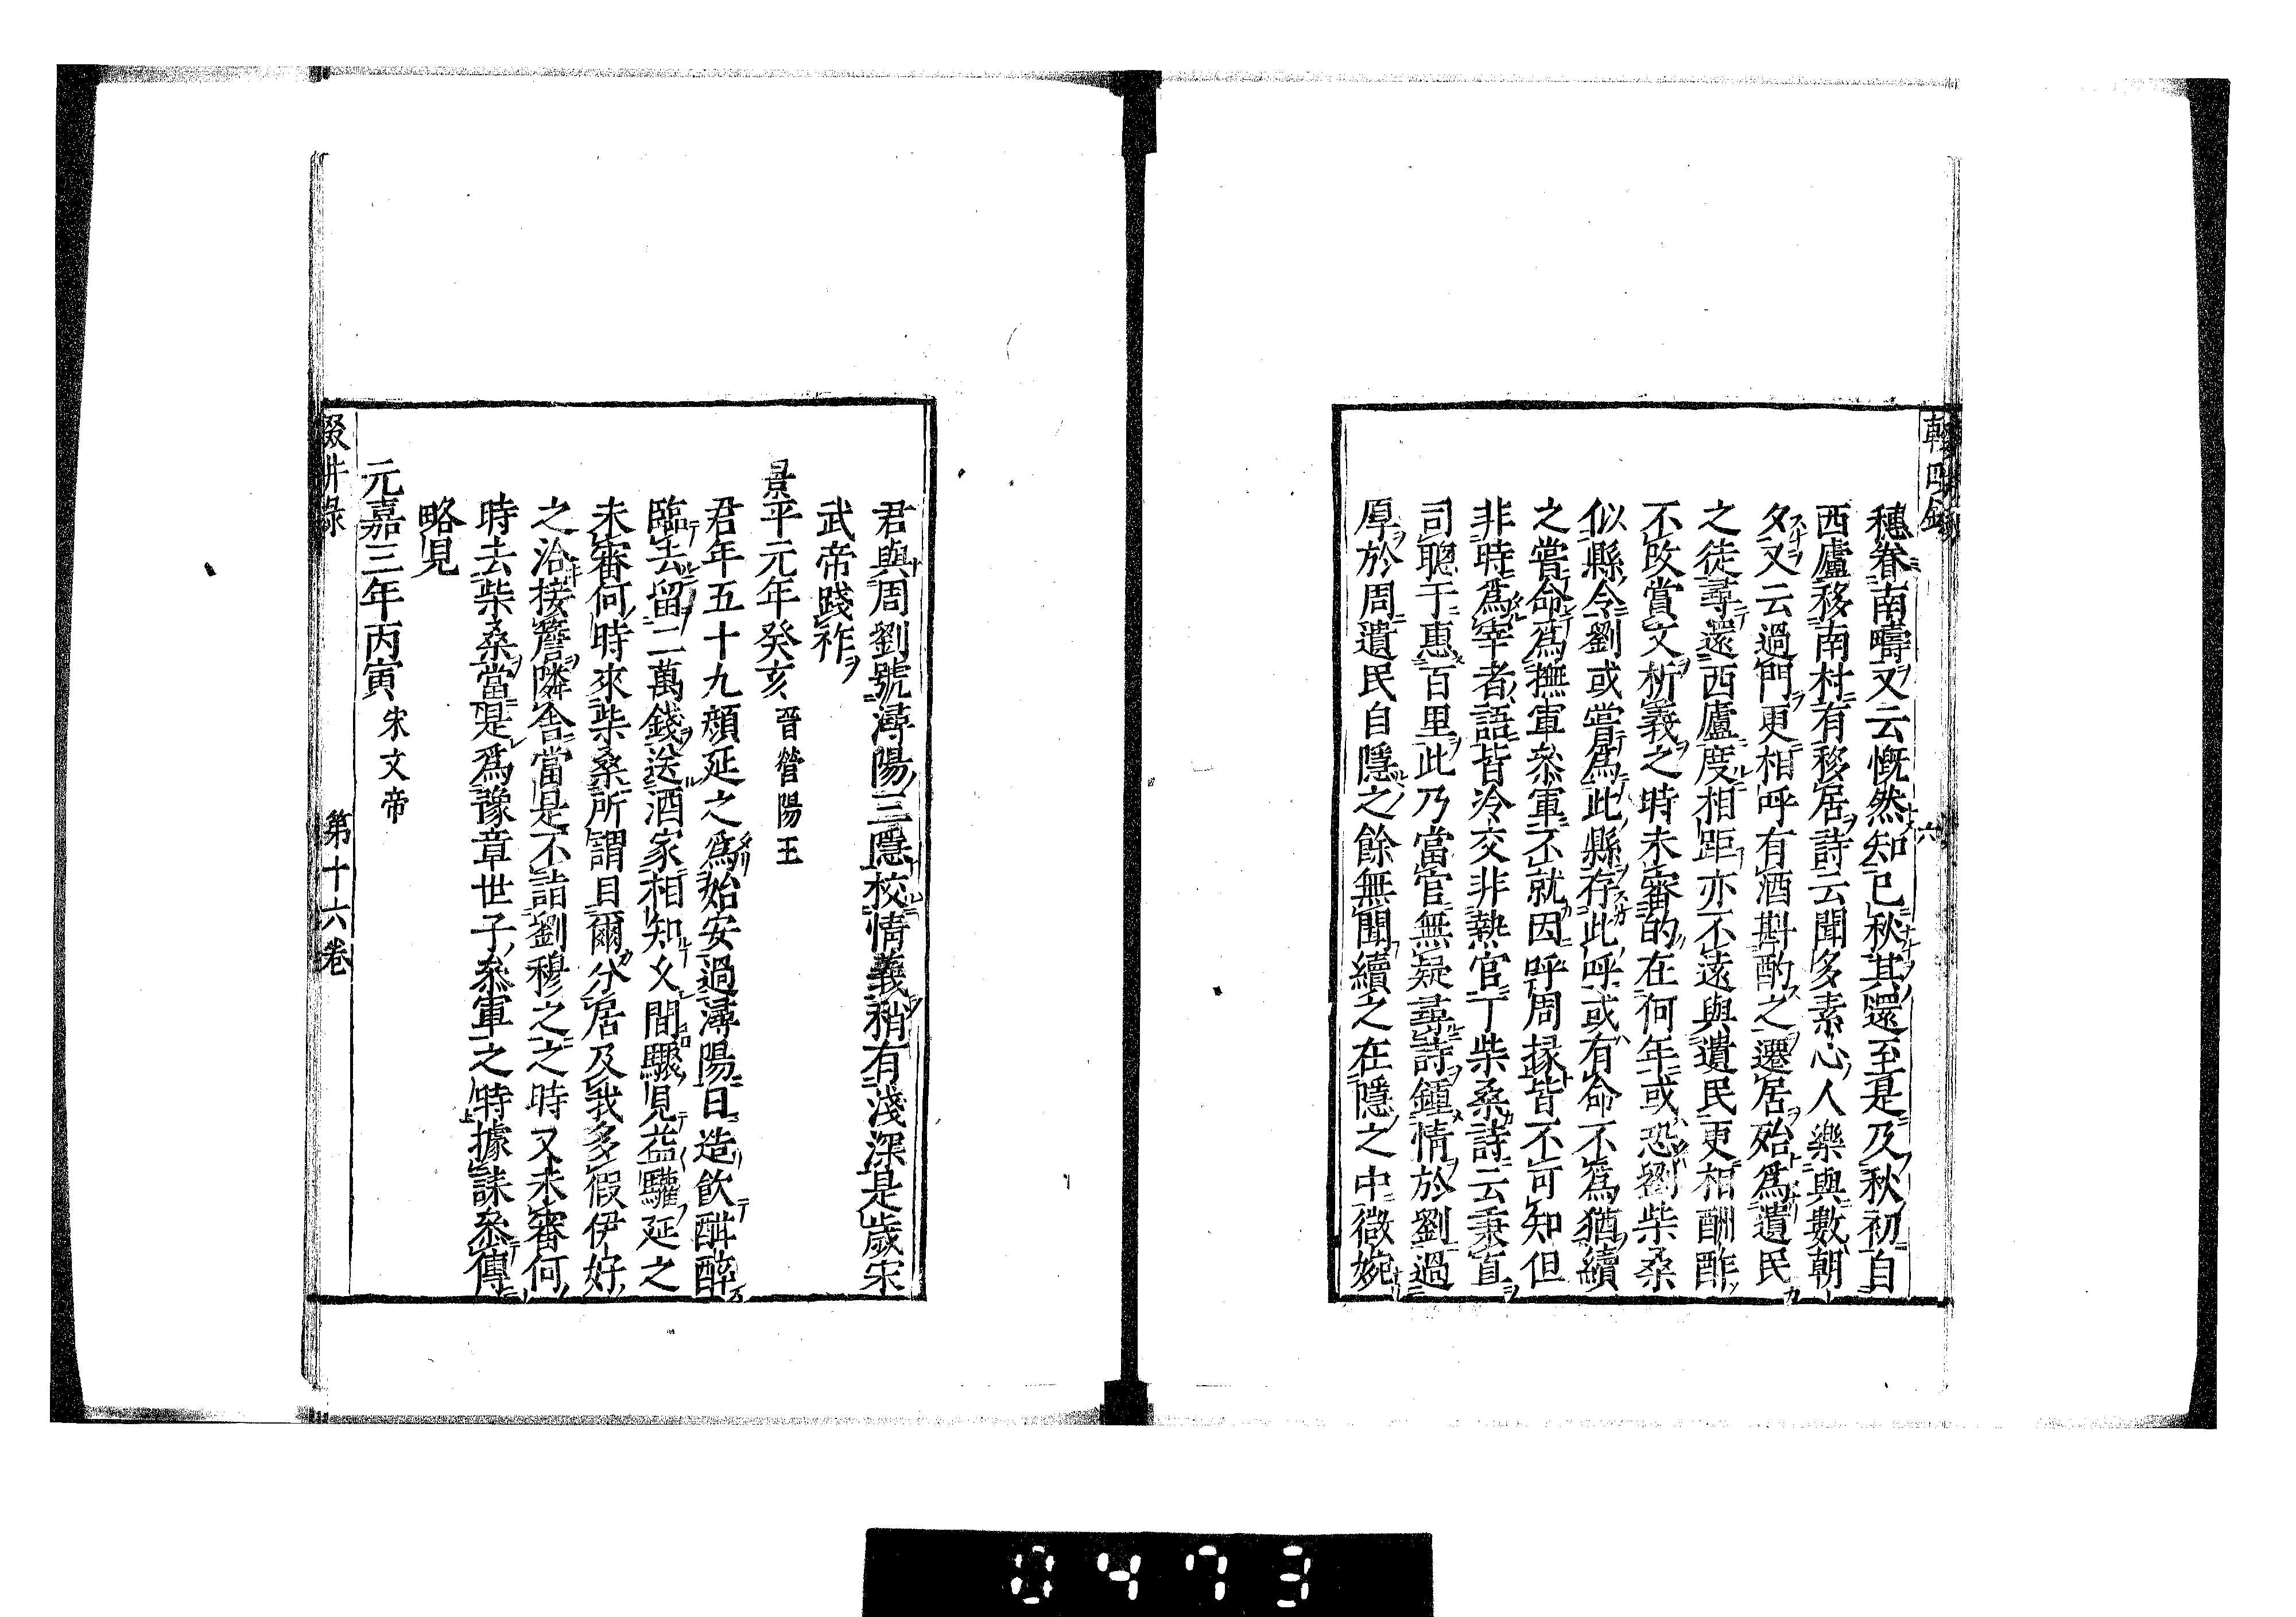 穗眷南疇又云慨然知已秋其還至是及秋初自
西廬移南村有移居詩云聞多素心人樂與數朝
夕又云過門更相呼有酒斟酌之遷居殆爲遺民
之徒尋還西廬度相距亦不遠與遺民更相酬酢
不攺賞文析義之時未審的在何年或恐劉柴桑
似縣令劉或嘗爲此縣存此呼或有命不爲猶續
之嘗命爲撫軍叅軍不就因呼周掾皆不可知但
非時爲宰者語皆冷交非熱官丁柴桑詩云秉直
司聰于惠百里此乃當官無疑尋詩鍾情於劉過
厚於周遺民自隱之餘無聞續之在隱之中微婉
君與周劉號潯陽三隱校情義稍有淺深是歲宋
武帝踐祚
景平元年癸亥 晉營陽王
君年五十九顏延之爲始安過潯陽日造飲酣醉
臨去留二萬錢送酒家相知久間驟見益驩延之
未審何時來柴桑所謂自爾分居及我多假伊好
之洽接簷隣舍當是不詣劉穆之之時又未審何
時去柴桑當是爲豫章世子叅軍之時據誄叅傳
略見
元嘉三年丙寅 宋文帝
輟畊錄
第十六卷
六
0473